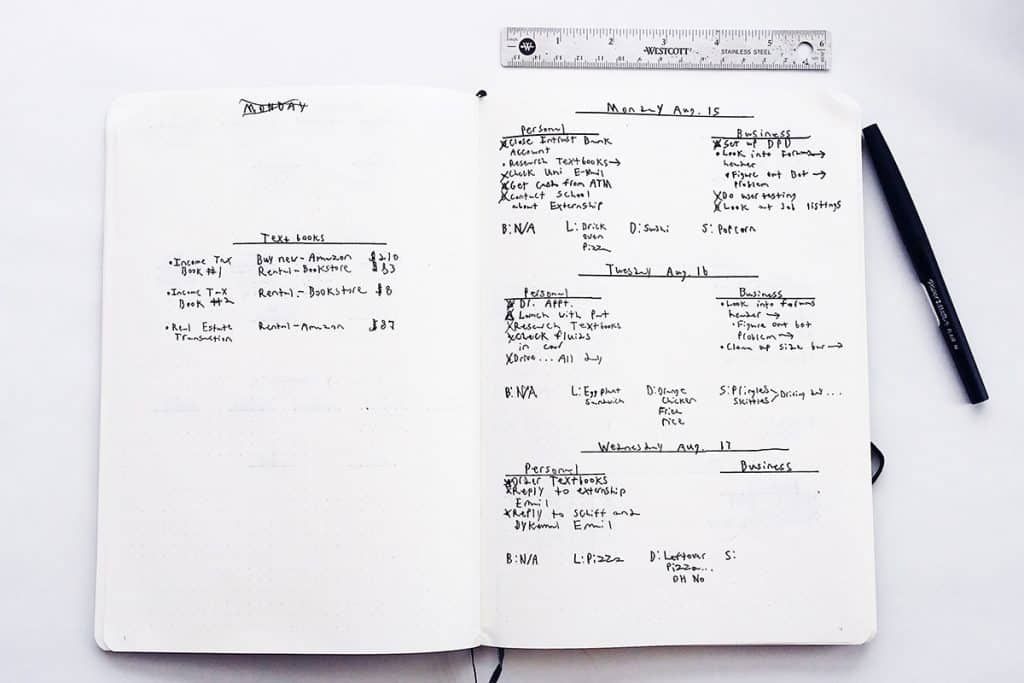 MONDAY
Textbooks
• Income Tax Buy new - Amazon $210
Book #1 Rental - Bookstore $83
• Income Tax Rental - Bookstore $8
Book #2
• Real Estate Rental - Amazon $37
Transaction
1 2 3 4 5 6
W WESTCOTT STAINLESS STEEL
Monday Aug. 15
Personal
Close Intrust Bank
Account
• Research Textbooks →
Check Uni E-Mail
Get Cash from ATM
Contact School
about Externship
Business
Set up DPD
• Look into Forums →
header
• Figure out Bot →
Problem
Do user testing
Look at Job listings
B: N/A L: Brick D: Sushi S: Popcorn
oven
Pizza
Tuesday Aug. 16
Personal
Dr. Appt.
Lunch with Pat
Research Textbooks
Check fluids
in car
Drive... All day
Business
• Look into forums
header →
• Figure out bot
Problem →
• Clean up size bar →
B: N/A L: Eggplant D: Orange S: Pringles > Driving day...
Sandwich Chicken Skittles
Fried
rice
Wednesday Aug. 17
Personal
Order Textbooks
Reply to externship
Email
Reply to Schiff and
Email
Business
B: N/A L: Pizza D: Leftover S:
Pizza...
OH NO